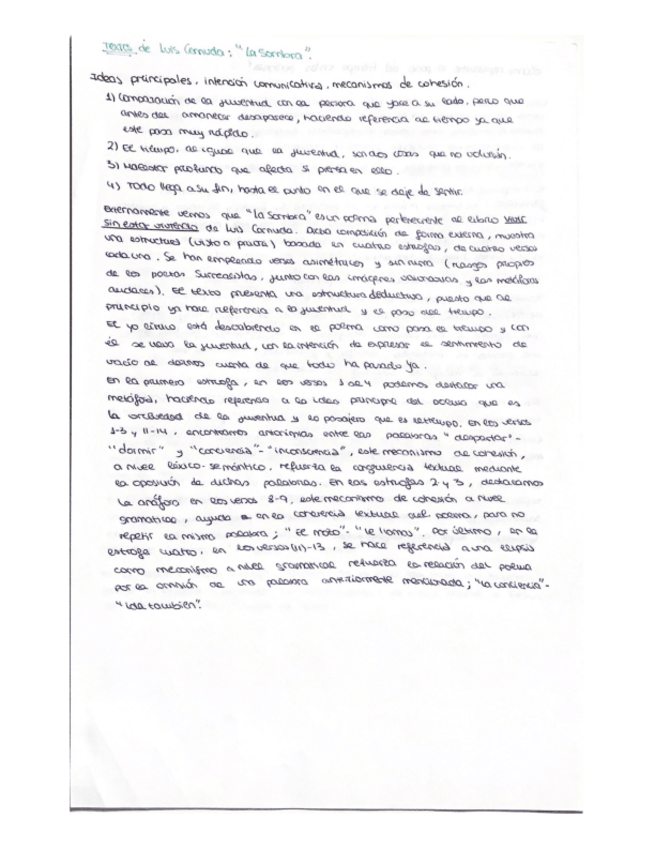 Texto de Luis Cernuda: "La Sombra".
Ideas principales, intención comunicativa, mecanismos de cohesión.
1) Comparación de la juventud con la persona que yace a su lado, pero que
antes del amanecer desaparece, haciendo referencia al tiempo ya que
este pasa muy rápido.
2) El tiempo, al igual que la juventud, son dos cosas que no volverán.
3) Malestar profundo que afecta si piensa en ello.
4) Todo llega a su fin, hasta el punto en el que se deje de sentir.
Externamente vemos que "La Sombra" es un poema perteneciente al libro Vivir
sin estar viviendo de Luis Cernuda. Dicha composición de forma externa, muestra
una estructura (visto a priori) basada en cuatro estrofas, de cuatro versos
cada una. Se han empleado versos asimétricos y sin rima (rasgos propios
de los poetas Surrealistas, junto con las imágenes visionarias y las metáforas
audaces). El texto presenta una estructura deductiva, puesto que al
principio ya hace referencia a la juventud y el paso del tiempo.
El yo lírico está describiendo en el poema como pasa el tiempo y con
él se va la juventud, con la intención de expresar el sentimiento de
vacío al darnos cuenta de que todo ha pasado ya.
En la primera estrofa, en los versos 1 al 4 podemos destacar una
metáfora, haciendo referencia a la idea principal del poema que es
la brevedad de la juventud y lo pasajero que es el tiempo. En los versos
1-3 y 11-14, encontramos antonimias entre las palabras "despertar"-
"dormir" y "conciencia"-"inconsciencia", este mecanismo de cohesión,
a nivel léxico-semántico, refuerza la congruencia textual mediante
la oposición de dichas palabras. En las estrofas 2 y 3, destacamos
la anáfora en los versos 8-9, este mecanismo de cohesión a nivel
gramatical, ayuda en la coherencia textual del poema, para no
repetir la misma palabra; "El moto"-"le llamas". Por último, en la
estrofa cuatro, en los versos (11)-13, se hace referencia a una elipsis
como mecanismo a nivel gramatical refuerza la relación del poema
por la omisión de una palabra anteriormente mencionada; "la conciencia"-
"ida también".